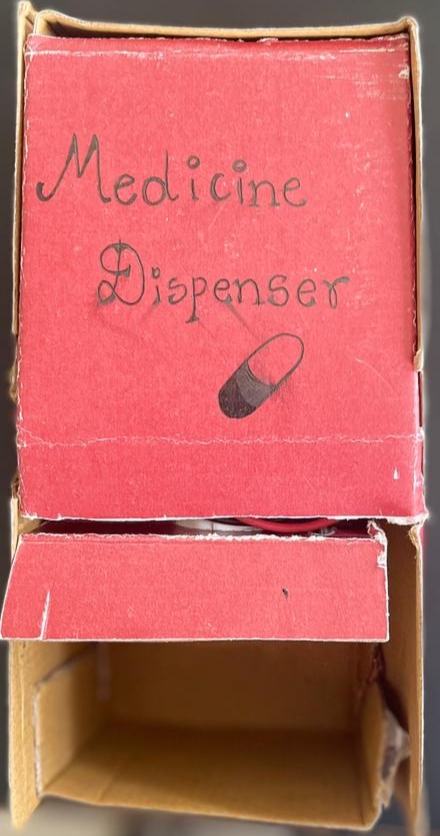 Medicine
Dispenser